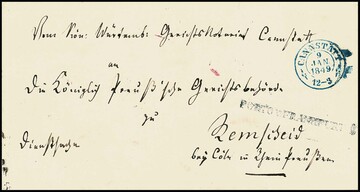 Vom Kön: Württemb: Gerichtsnotariat Cannstatt
CANNSTATT
9
JAN
1849
12-3
an
Die Königlich Preuß'sche Gerichtsbehörde
zu
Remscheid
Dienstsache
bey Cöln in Rhein Preußen